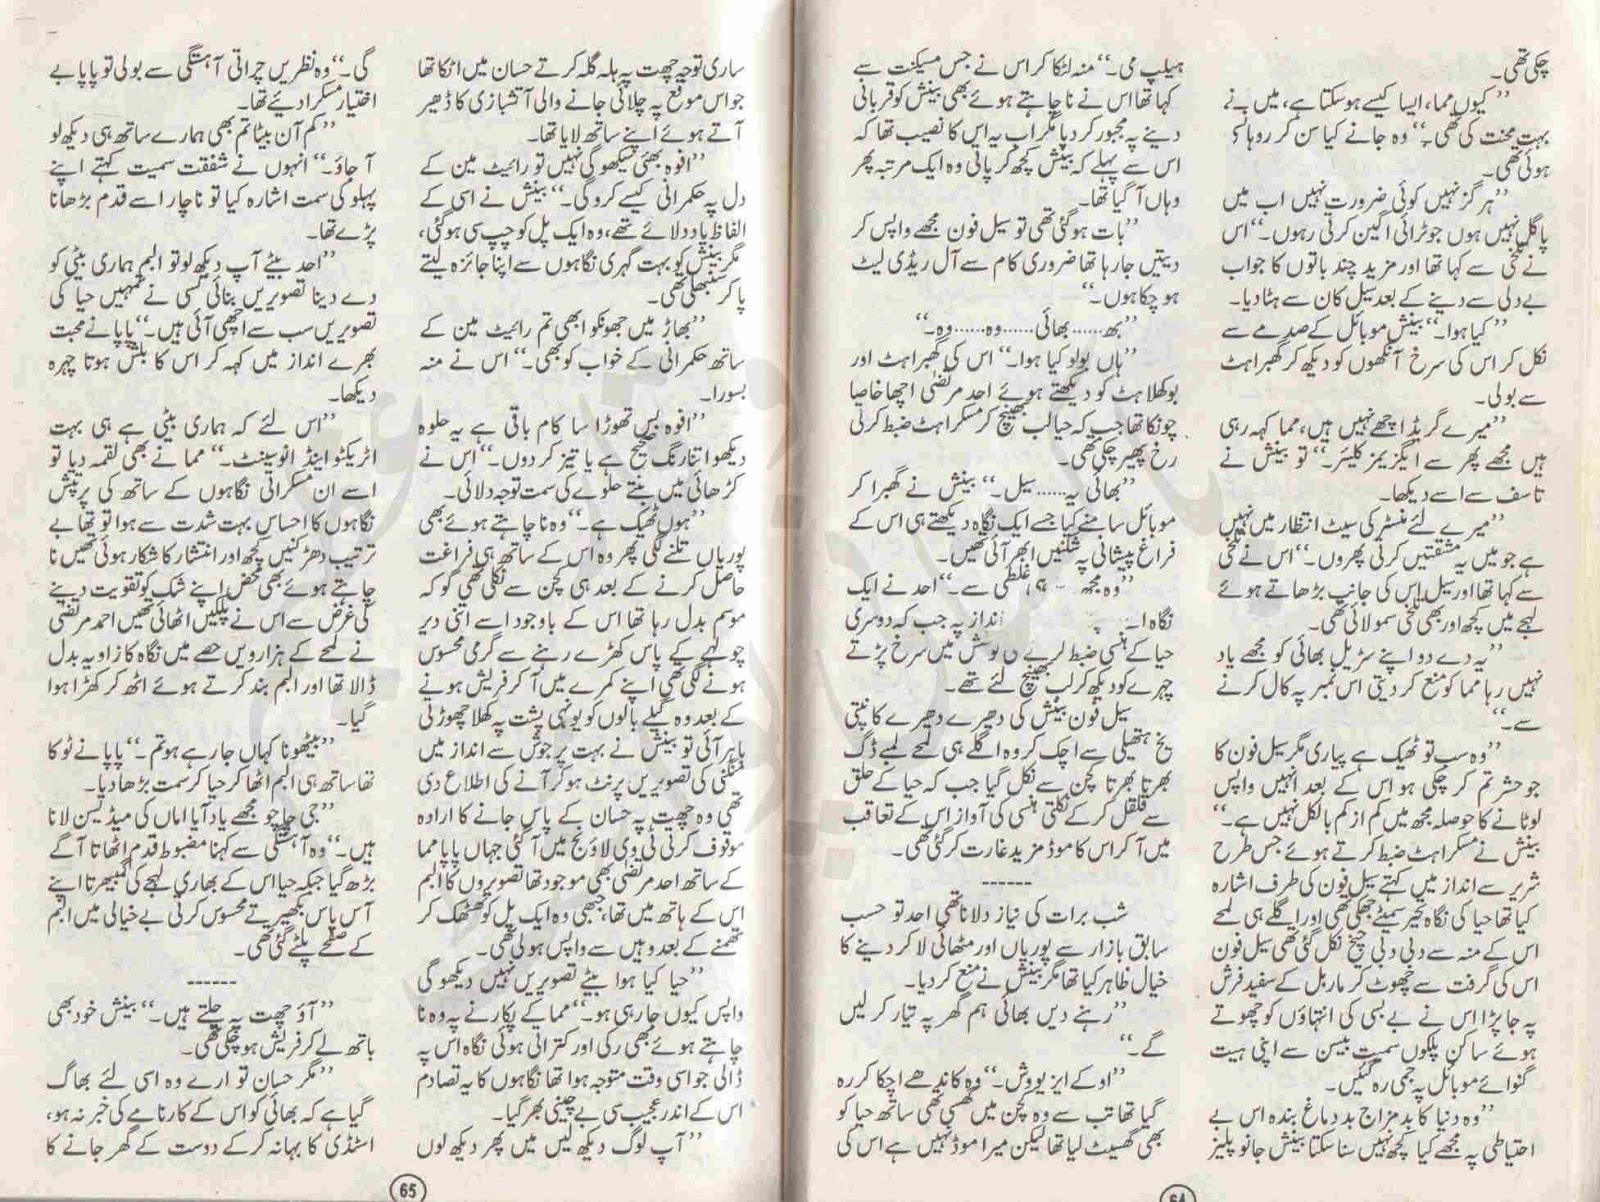 چکی تھی۔
’’کیوں مما، ایسا کیسے ہو سکتا ہے، میں نے
بہت محنت کی تھی۔‘‘ وہ جانے کیا سن کر روہانسی
ہوئی تھی۔
’’ہر گز نہیں کوئی ضرورت نہیں اب میں
پاگل نہیں ہوں جو ٹرائی اگین کرتی رہوں۔‘‘ اس
نے تلخی سے کہا تھا اور مزید چند باتوں کا جواب
بے دلی سے دینے کے بعد سیل کان سے ہٹا دیا۔
’’کیا ہوا۔‘‘ بینش موبائل کے صدمے سے
نکل کر اس کی سرخ آنکھوں کو دیکھ کر گھبراہٹ
سے بولی۔
’’میرے گریڈ اچھے نہیں ہیں، مما کہہ رہی
ہیں مجھے پھر سے ایگزیمز کلیئر۔‘‘ تو بینش نے
تاسف سے اسے دیکھا۔
’’میرے لئے منسٹر کی سیٹ انتظار میں نہیں
ہے جو میں یہ مشقتیں کرتی پھروں۔‘‘ اس نے تلخی
سے کہا تھا اور سیل اس کی جانب بڑھاتے ہوئے
لہجے میں کچھ اور بھی تلخی سمو لائی تھی۔
’’یہ دے دو اپنے سڑیل بھائی کو مجھے یاد
نہیں رہا مما کو منع کر دیتی اس نمبر پہ کال کرنے
سے۔‘‘
’’وہ سب تو ٹھیک ہے پیاری مگر سیل فون کا
جو حشر تم کر چکی ہو اس کے بعد انہیں واپس
لوٹانے کا حوصلہ مجھ میں کم از کم بالکل نہیں ہے۔‘‘
بینش نے مسکراہٹ ضبط کرتے ہوئے جس طرح
شریر سے انداز میں کہتے سیل فون کی طرف اشارہ
کیا تھا حیا کی نگاہ تحیر سمیٹے جھکی تھی اور اگلے ہی لمحے
اس کے منہ سے دبی دبی چیخ نکل گئی تھی سیل فون
اس کی گرفت سے چھوٹ کر ماربل کے سفید فرش
پہ جا پڑا اس نے بے بسی کی انتہاؤں کو چھوتے
ہوئے ساکن پلکوں سمیت بیسن سے اپنی ہیت
گنوائے موبائل پہ جمی رہ گئیں۔
’’وہ دنیا کا بد مزاج بد دماغ بندہ اس بے
احتیاطی پہ مجھے کیا کچھ نہیں سنا سکتا بینش جانو پلیز
ہیلپ می۔‘‘ منہ لٹکا کر اس نے جس مسکینت سے
کہا تھا اس نے نا چاہتے ہوئے بھی بینش کو قربانی
دینے پہ مجبور کر دیا مگر اب یہ اس کا نصیب تھا کہ
اس سے پہلے کہ بینش کچھ کر پاتی وہ ایک مرتبہ پھر
وہاں آ گیا تھا۔
’’بات ہو گئی تھی تو سیل فون مجھے واپس کر
دیتیں جا رہا تھا ضروری کام سے آل ریڈی لیٹ
ہو چکا ہوں۔‘‘
’’بھ......بھائی......وہ......وہ۔‘‘
’’ہاں بولو کیا ہوا۔‘‘ اس کی گھبراہٹ اور
بوکھلاہٹ کو دیکھتے ہوئے احد مرتضیٰ اچھا خاصا
چونکا تھا جب کہ حیا لب بھینچ کر مسکراہٹ ضبط کرتی
رخ پھیر چکی تھی۔
’’بھائی یہ......سیل۔‘‘ بینش نے گھبرا کر
موبائل سامنے کیا جسے ایک نگاہ دیکھتے ہی اس کے
فراغ پیشانی پہ شکنیں ابھر آئی تھیں۔
’’وہ مجھ غلطی سے۔‘‘ احد نے ایک
نگاہ انداز پہ جب کہ دوسری
حیا کے ہنسی ضبط کرنے کی کوشش میں سرخ پڑتے
چہرے کو دیکھ کر لب بھینچ لئے تھے۔
سیل فون بینش کی دھیرے دھیرے کانپتی
یخ ہتھیلی سے اچک کر وہ اگلے ہی لمحے لمبے ڈگ
بھرتا بھرتا کچن سے نکل گیا جب کہ حیا کے حلق
سے قلقل کر کے نکلتی ہنسی کی آواز اس کے تعاقب
میں آ کر اس کا موڈ مزید غارت کر گئی تھی۔
------
شب برات کی نیاز دلانا تھی احد تو حسب
سابق بازار سے پوریاں اور مٹھائی لا کر دینے کا
خیال ظاہر کیا تھا مگر بینش نے منع کر دیا۔
’’رہنے دیں بھائی ہم گھر پہ تیار کر لیں
گے۔‘‘
’’او کے ایز یو وش۔‘‘ وہ کاندھے اچکا کر رہ
گیا تھا تب سے وہ کچن میں گھسی تھی ساتھ حیا کو
بھی گھسیٹ لیا تھا لیکن میرا موڈ نہیں ہے اس کی
64
ساری توجہ چھت پہ ہلہ گلہ کرتے حسان میں اٹکا تھا
جو اس موقع پہ چلائی جانے والی آتشبازی کا ڈھیر
آتے ہوئے اپنے ساتھ لایا تھا۔
’’افوہ بھئی سیکھو گی نہیں تو رائیٹ مین کے
دل پہ حکمرانی کیسے کرو گی۔‘‘ بینش نے اسی کے
الفاظ یاد دلائے تھے، وہ ایک پل کو چپ سی ہو گئی،
مگر بینش کو بہت گہری نگاہوں سے اپنا جائزہ لیتے
پا کر سنبھلی تھی۔
’’بھاڑ میں جھونکو ابھی تم رائیٹ مین کے
ساتھ حکمرانی کے خواب کو بھی۔‘‘ اس نے منہ
بسورا۔
’’افوہ بس تھوڑا سا کام باقی ہے یہ حلوہ
دیکھو اتنا رنگ صحیح ہے یا تیز کر دوں۔‘‘ اس نے
کڑھائی میں بنتے حلوے کی سمت توجہ دلائی۔
’’ہوں ٹھیک ہے۔‘‘ وہ نا چاہتے ہوئے بھی
پوریاں تلنے لگی پھر وہ اس کے ساتھ ہی فراغت
حاصل کرنے کے بعد ہی کچن سے نکلی تھی گو کہ
موسم بدل رہا تھا اس کے باوجود اسے اتنی دیر
چولہے کے پاس کھڑے رہنے سے گرمی محسوس
ہونے لگی تھی اپنے کمرے میں آ کر فریش ہونے
کے بعد وہ گیلے بالوں کو یونہی پشت پہ کھلا چھوڑتی
باہر آئی تو بینش نے بہت پر جوش سے انداز میں
منگنی کی تصویریں پرنٹ ہو کر آنے کی اطلاع دی
تھی وہ چھت پہ حسان کے پاس جانے کا ارادہ
موقوف کرتی ٹی وی لاؤنج میں آ گئی جہاں پاپا مما
کے ساتھ احد مرتضیٰ بھی موجود تھا تصویروں کا البم
اس کے ہاتھ میں تھا، جبھی وہ ایک پل کو ٹھٹھک کر
تھمنے کے بعد وہیں سے واپس ہولی تھی۔
’’حیا کیا ہوا بیٹے تصویریں نہیں دیکھو گی
واپس کیوں جا رہی ہو۔‘‘ مما کے پکارنے پہ وہ نا
چاہتے ہوئے بھی رکی اور کتراتی ہوئی نگاہ اس پہ
ڈالی جو اسی وقت متوجہ ہوا تھا نگاہوں کا یہ تصادم
اس کے اندر عجیب سی بے چینی بھر گیا۔
’’آپ لوگ دیکھ لیں میں پھر دیکھ لوں
گی۔‘‘ وہ نظریں چراتی آہستگی سے بولی تو پاپا بے
اختیار مسکرا دیئے تھا۔
’’کم آن بیٹا تم بھی ہمارے ساتھ ہی دیکھ لو
آ جاؤ۔‘‘ انہوں نے شفقت سمیت کہتے اپنے
پہلو کی سمت اشارہ کیا تو ناچار اسے قدم بڑھانا
پڑے تھا۔
’’احد بیٹے آپ دیکھ لو تو البم ہماری بیٹی کو
دے دینا تصویریں بنائی کسی نے تمہیں حیا کی
تصویریں سب سے اچھی آئی ہیں۔‘‘ پاپا نے محبت
بھرے انداز میں کہہ کر اس کا بلش ہوتا چہرہ
دیکھا۔
’’اس لئے کہ ہماری بیٹی ہے ہی بہت
اٹریکٹو اینڈ انوسینٹ۔‘‘ مما نے بھی لقمہ دیا تو
اسے ان مسکراتی نگاہوں کے ساتھ کی پرتپش
نگاہوں کا احساس بہت شدت سے ہوا تو تھا بے
ترتیب دھڑکنیں کچھ اور انتشار کا شکار ہوئی تھیں نا
چاہتے ہوئے بھی محض اپنے شک کو تقویت دینے
کی غرض سے اس نے پلکیں اٹھائی تھیں احمد مرتضیٰ
نے لمحے کے ہزارویں حصے میں نگاہ کا زاویہ بدل
ڈالا تھا اور البم بند کرتے ہوئے اٹھ کر کھڑا ہوا
گیا۔
’’بیٹھو نا کہاں جا رہے ہو تم۔‘‘ پاپا نے ٹوکا
تھا ساتھ ہی البم اٹھا کر حیا کر سمت بڑھا دیا۔
’’جی چاچو مجھے یاد آیا اماں کی میڈیسن لانا
ہیں۔‘‘ وہ آہستگی سے کہنا مضبوط قدم اٹھاتا آگے
بڑھ گیا جبکہ حیا اس کے بھاری لہجے کی گھمبیرتا اپنے
آس پاس بکھیرتے محسوس کرتی بے خیالی میں البم
کے صفحے پلٹے گئی تھی۔
------
’’آؤ چھت پہ چلتے ہیں۔‘‘ بینش خود بھی
باتھ لے کر فریش ہو چکی تھی۔
’’مگر حسان تو ارے وہ اسی لئے بھاگ
گیا ہے کہ بھائی کو اس کے کارنامے کی خبر نہ ہو،
اسٹڈی کا بہانہ کر کے دوست کے گھر جانے کا
65